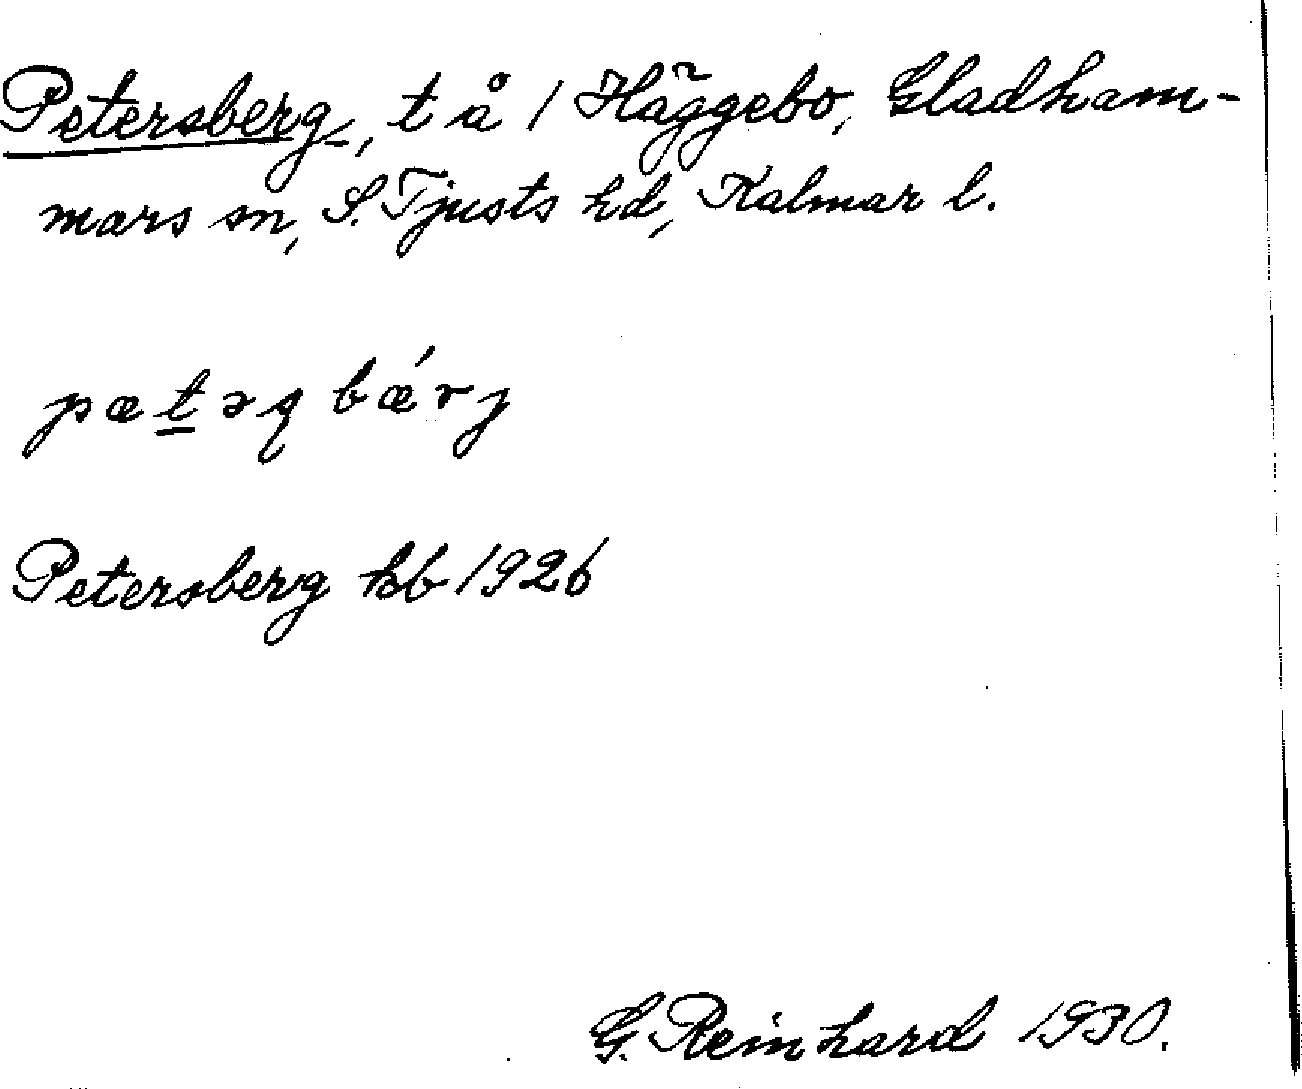 Petersberg, t å 1 Häggebo, Gladham-
mars sn, S. Tjusts hd, Kalmar l.
pætəq bǽrj
Petersberg kb 1926
G. Reinhard 1930.